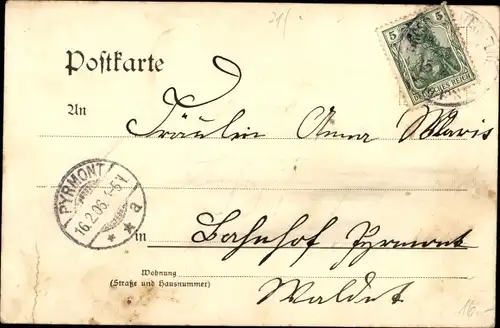 21/
5 5
DEUTSCHES REICH
Postkarte
An
Fräulein Anna Mavis
PYRMONT
16.2.06. 5-6N
* * a
in Bahnhof Pyrmont
Wohnung
(Straße und Hausnummer)
Waldet
16.-